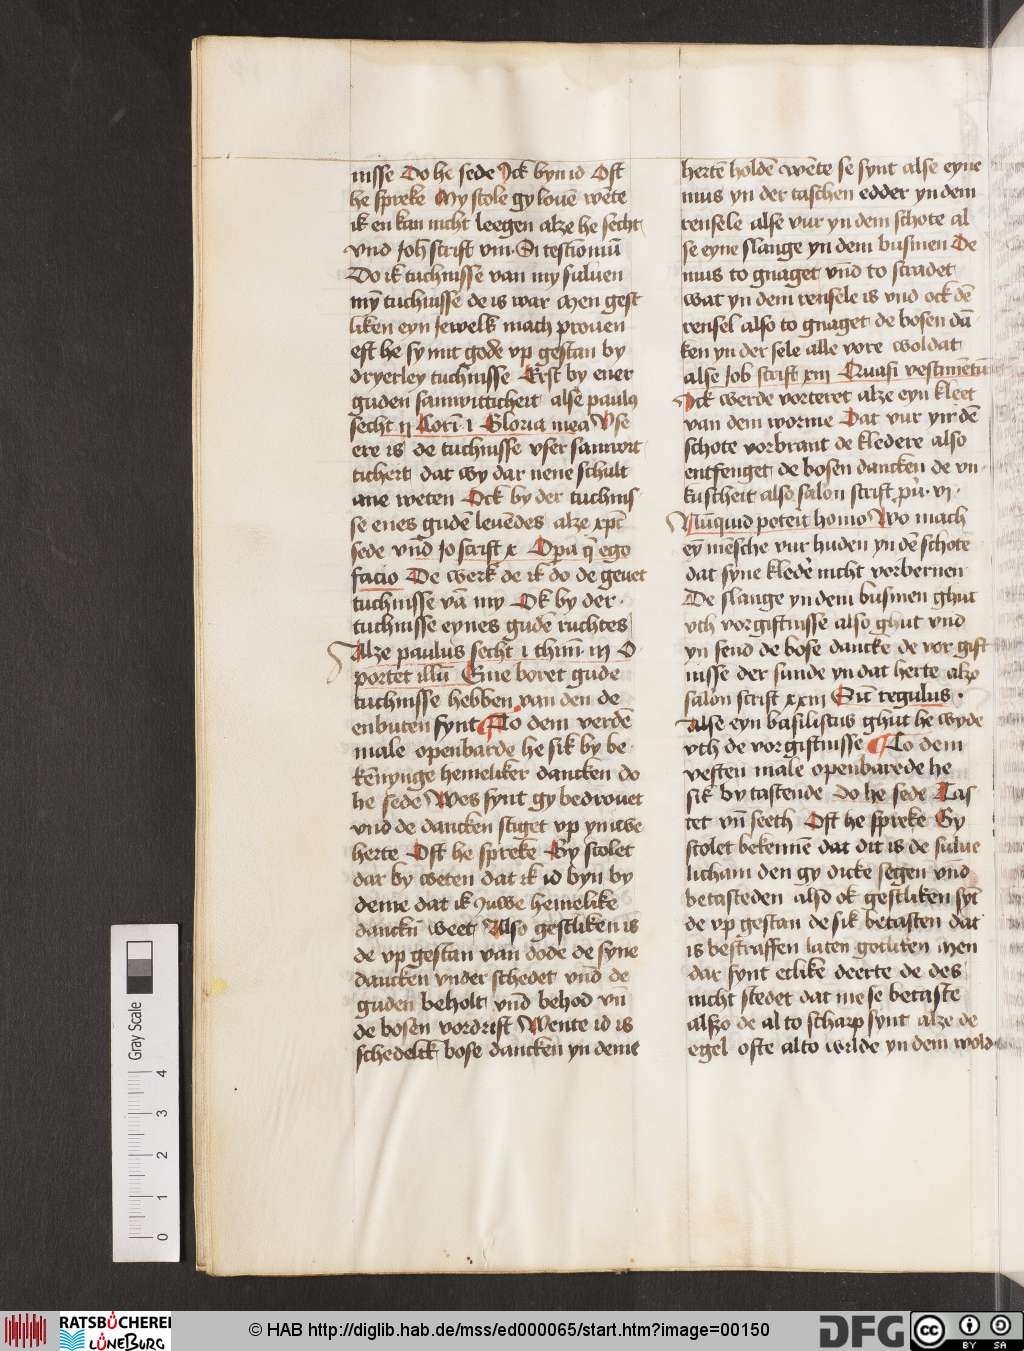 nisse Do he sede Ick byn id Oft
he spreke My stole gy louē wēte
ik en kan nicht leegen alze he secht
vnd Joh̄ scrift viii · Si testimoniū
Do ik tuchnisse van my suluen
mȳ tuchnisse de is war Men gest
liken eyn Jewelk mach prouen
eft he sy mit gode vp gestan by
dryerley tuchnisse Erst by ener
guden samwitticheit alse paulꝯ
secht ij Corī · i Gloria mea Vse
ere is de tuchnisse vser samwit
ticheit dat wy dar nene schult
ane weten Ock by der tuchnis
se enes gudē leuēdes alze xp̄c
sede vnd Jo scrift x Opa q̄ ego
facio De werk de ik do de geuet
tuchnisse vā my Ok by der ·
tuchnisse eynes gudē ruchtes
Alze paulus secht i thim̄ · iij O
portet illū Ene boret gude
tuchnisse hebben van den de
enbuten synt To dem verdē
male openbarde he sik by be ·
kēnynge hemeliker dancken do
he sede Wes synt gy bedrouet
vnd de dancken stiget vp yn iwe
herte Oft he spreke Gy stolet
dar by weten dat ik id byn by
deme dat ik Juwe hemelike
danckn̄ weet Also gestliken is
de vp gestan van dode de syne
dancken vnder schedet vnd de
guden beholt vnd behod vn̄
de bosen vordrift Wente id is
schedelik bose dancken yn deme
hertē holdē wēte se synt alse eyne
mus yn der taschen edder yn dem
rensele alse vur yn dem schote al
se eyne slange yn dem busmen De
mus to gnaget vnd to scradet
wat yn dem rensele is vnd ock dē
rensel also to gnaget de bosen dā
ken yn der sele alle vore woldat
alse Job scrift xiij Quasi vestimētū
Ick werde vorteret alze eyn kleet
van dem worme Dat vur yn dē
schote vorbrant de kledere also
entfenget de bosen dancken de vn
kuscheit also salon scrift pū · vi ·
Nūquid potest homo Wo mach
eȳ mēsche vur huden yn dē schote
dat syne kledē nicht vorbernen
De slange yn dem busmen ghut
vth vorgiftnisse also ghut vnd
yn send de bose dancke de vor gift
nisse der sunde yn dat herte alzo
salon scrift xxiij Sicut regulus ·
Alse eyn basiliscus ghut he wyde
vth de vorgiftnisse To dem
vesten male openbarede he
sik by tastende do he sede Tas
tet vn̄ seeth Oft he spreke Gy
stolet bekennē dat dit is de sulue
licham den gy dicke segen vnd
betasteden alsō ok gestliken synt
de vp gestan de sik betasten dat
is bestraffen laten gotliken Men
dar synt etlike deerte de des
nicht stedet dat me se betaste
alszo de al to scharp synt alze de
egel ofte alto wilde yn dem wold
Gray Scale
4
3
2
1
0
RATSBÜCHEREI
LÜNEBURG
© HAB http://diglib.hab.de/mss/ed000065/start.htm?image=00150
DFG
CC BY SA